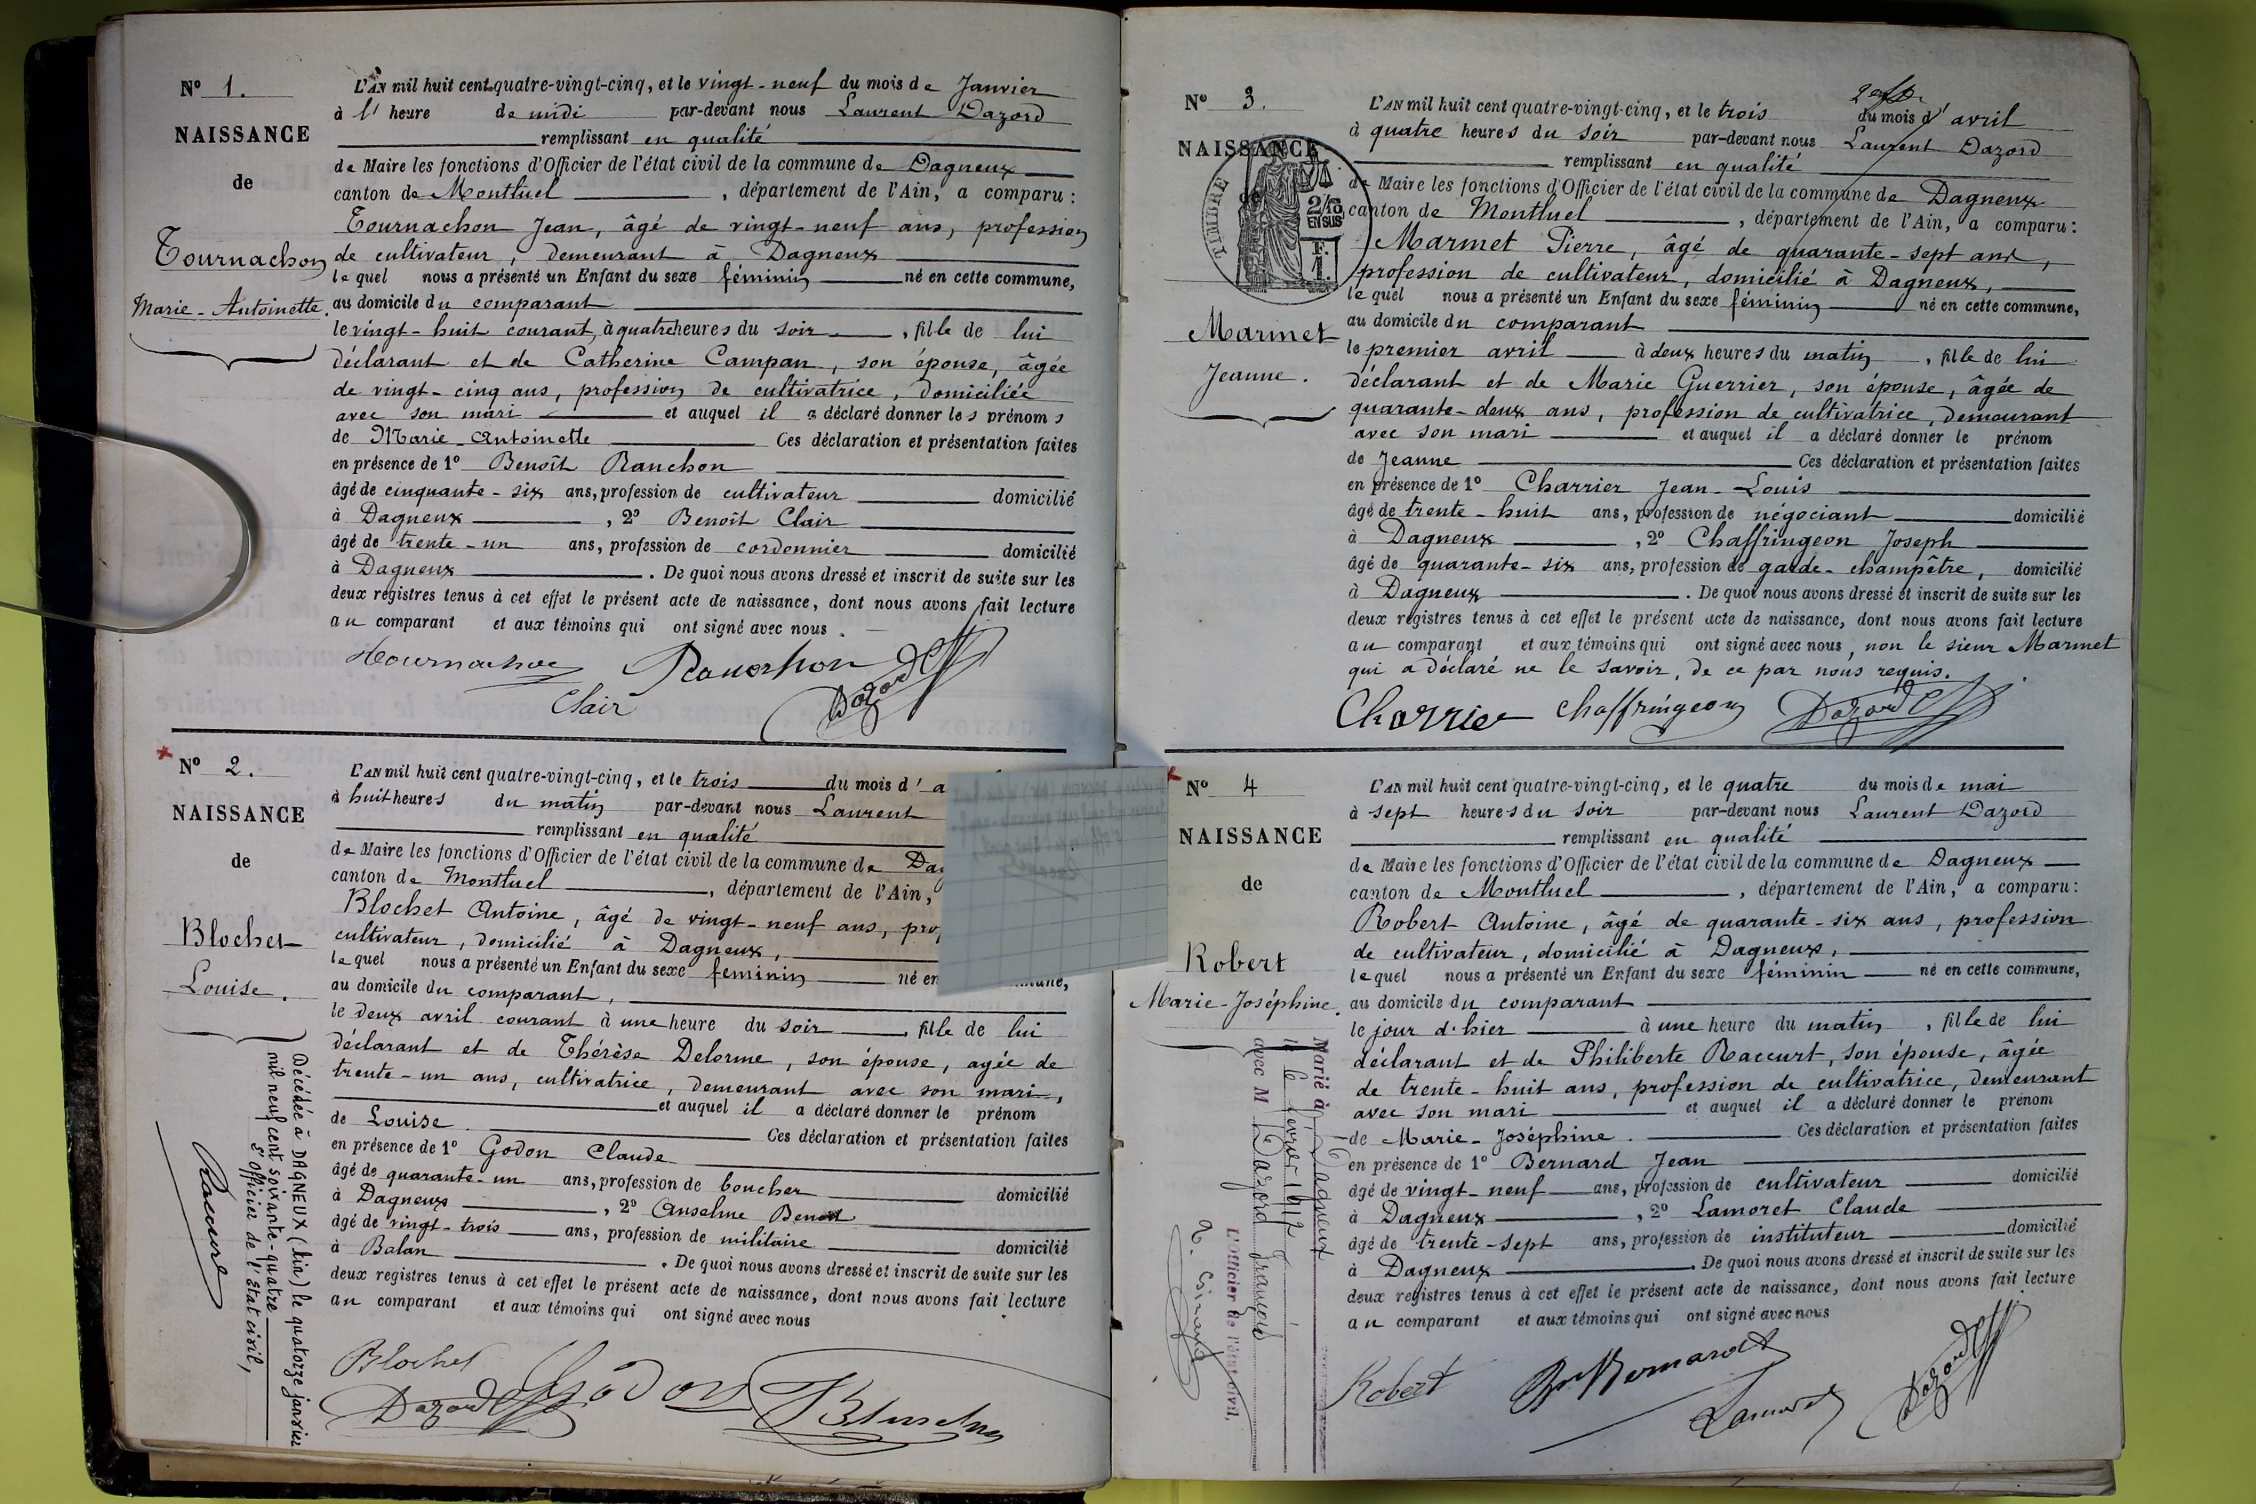 N° 1.
NAISSANCE
de
Tournachon
Marie-Antoinette.
L'AN mil huit cent quatre-vingt-cinq, et le vingt-neuf du mois de Janvier
à l' heure de midi par-devant nous Laurent Dazord
remplissant en qualité
de Maire les fonctions d'Officier de l'état civil de la commune de Dagneux
canton de Montluel, département de l'Ain, a comparu :
Tournachon Jean, âgé de vingt-neuf ans, profession
de cultivateur, demeurant à Dagneux
lequel nous a présenté un Enfant du sexe féminin né en cette commune,
au domicile du comparant
le vingt-huit courant, à quatre heures du soir, fille de lui
déclarant et de Catherine Campan, son épouse, âgée
de vingt-cinq ans, profession de cultivatrice, domiciliée
avec son mari et auquel il a déclaré donner les prénoms
de Marie-Antoinette Ces déclaration et présentation faites
en présence de 1° Benoît Ranchon
âgé de cinquante-six ans, profession de cultivateur domicilié
à Dagneux, 2° Benoît Clair
âgé de trente-un ans, profession de cordonnier domicilié
à Dagneux. De quoi nous avons dressé et inscrit de suite sur les
deux registres tenus à cet effet le présent acte de naissance, dont nous avons fait lecture
au comparant et aux témoins qui ont signé avec nous.
Tournachon Ranchon
Clair Dazord
N° 2.
NAISSANCE
de
Blochet
Louise.
Décédée à DAGNEUX (Ain) le quatorze janvier
mil neuf cent soixante-quatre
L'officier de l'état civil,
L'AN mil huit cent quatre-vingt-cinq, et le trois du mois d'a
à huit heures du matin par-devant nous Laurent
remplissant en qualité
de Maire les fonctions d'Officier de l'état civil de la commune de Dag
canton de Montluel, département de l'Ain,
Blochet Antoine, âgé de vingt-neuf ans, prof
cultivateur, domicilié à Dagneux,
lequel nous a présenté un Enfant du sexe féminin né en mune,
au domicile du comparant,
le deux avril courant à une heure du soir, fille de lui
déclarant et de Thérèse Delorme, son épouse, agée de
trente-un ans, cultivatrice, demeurant avec son mari,
et auquel il a déclaré donner le prénom
de Louise. Ces déclaration et présentation faites
en présence de 1° Godon Claude
âgé de quarante-un ans, profession de boucher domicilié
à Dagneux, 2° Anselme Benoit
âgé de vingt-trois ans, profession de militaire domicilié
à Balan. De quoi nous avons dressé et inscrit de suite sur les
deux registres tenus à cet effet le présent acte de naissance, dont nous avons fait lecture
au comparant et aux témoins qui ont signé avec nous
Blochet
Dazord Godon
N° 3.
NAISSANCE
de
TIMBRE
2/10
EN SUS
F.
1.
Marmet
Jeanne.
L'AN mil huit cent quatre-vingt-cinq, et le trois du mois d'avril
à quatre heures du soir par-devant nous Laurent Dazord
remplissant en qualité
de Maire les fonctions d'Officier de l'état civil de la commune de Dagneux
canton de Montluel, département de l'Ain, a comparu :
Marmet Pierre, âgé de quarante-sept ans,
profession de cultivateur, domicilié à Dagneux,
lequel nous a présenté un Enfant du sexe féminin né en cette commune,
au domicile du comparant
le premier avril à deux heures du matin, fille de lui
déclarant et de Marie Guerrier, son épouse, âgée de
quarante-deux ans, profession de cultivatrice, demeurant
avec son mari et auquel il a déclaré donner le prénom
de Jeanne Ces déclaration et présentation faites
en présence de 1° Charrier Jean-Louis
âgé de trente-huit ans, profession de négociant domicilié
à Dagneux, 2° Chaffringeon Joseph
âgé de quarante-six ans, profession de garde-champêtre, domicilié
à Dagneux. De quoi nous avons dressé et inscrit de suite sur les
deux registres tenus à cet effet le présent acte de naissance, dont nous avons fait lecture
au comparant et aux témoins qui ont signé avec nous, non le sieur Marmet
qui a déclaré ne le savoir, de ce par nous requis.
Charrier Chaffringeon Dazord
N° 4
NAISSANCE
de
Robert
Marie-Joséphine.
Marié à Dagneux
le 6 février 1912
avec M Dazord François
L'Officier de l'état civil,
L'AN mil huit cent quatre-vingt-cinq, et le quatre du mois de mai
à sept heures du soir par-devant nous Laurent Dazord
remplissant en qualité
de Maire les fonctions d'Officier de l'état civil de la commune de Dagneux
canton de Montluel, département de l'Ain, a comparu :
Robert Antoine, âgé de quarante-six ans, profession
de cultivateur, domicilié à Dagneux,
lequel nous a présenté un Enfant du sexe féminin né en cette commune,
au domicile du comparant
le jour d'hier à une heure du matin, fille de lui
déclarant et de Philiberte Raccurt, son épouse, âgée
de trente-huit ans, profession de cultivatrice, demeurant
avec son mari et auquel il a déclaré donner le prénom
de Marie-Joséphine. Ces déclaration et présentation faites
en présence de 1° Bernard Jean
âgé de vingt-neuf ans, profession de cultivateur domicilié
à Dagneux, 2° Lamoret Claude
âgé de trente-sept ans, profession de instituteur domicilié
à Dagneux. De quoi nous avons dressé et inscrit de suite sur les
deux registres tenus à cet effet le présent acte de naissance, dont nous avons fait lecture
au comparant et aux témoins qui ont signé avec nous
Robert Bernard
Lamoret Dazord